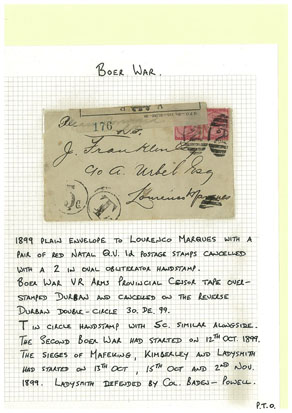 BOER WAR.
176
J. Franklin
Urbel Esq
Lourenco Marques
1899 PLAIN ENVELOPE TO LOURENCO MARQUES WITH A
PAIR OF RED NATAL Q.V. 1d POSTAGE STAMPS CANCELLED
WITH A 2 IN OVAL OBLITERATOR HANDSTAMP.
BOER WAR V.R ARMS PROVINCIAL CENSOR TAPE OVER-
STAMPED DURBAN AND CANCELLED ON THE REVERSE
DURBAN DOUBLE-CIRCLE 30. DE. 99.
T IN CIRCLE HANDSTAMP WITH 5C. SIMILAR ALONGSIDE.
THE SECOND BOER WAR HAD STARTED ON 12TH OCT. 1899.
THE SIEGES OF MAFEKING, KIMBERLEY AND LADYSMITH
HAD STARTED ON 13TH OCT, 15TH OCT AND 2ND NOV.
1899. LADYSMITH DEFENDED BY COL. BADEN-POWELL.
P.T.O.